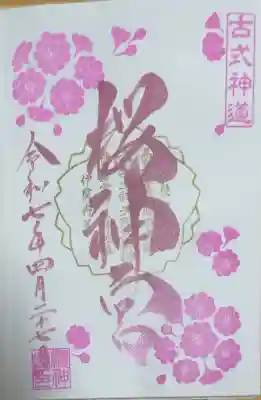 古式神道
桜神宮
令和七年四月二十七日